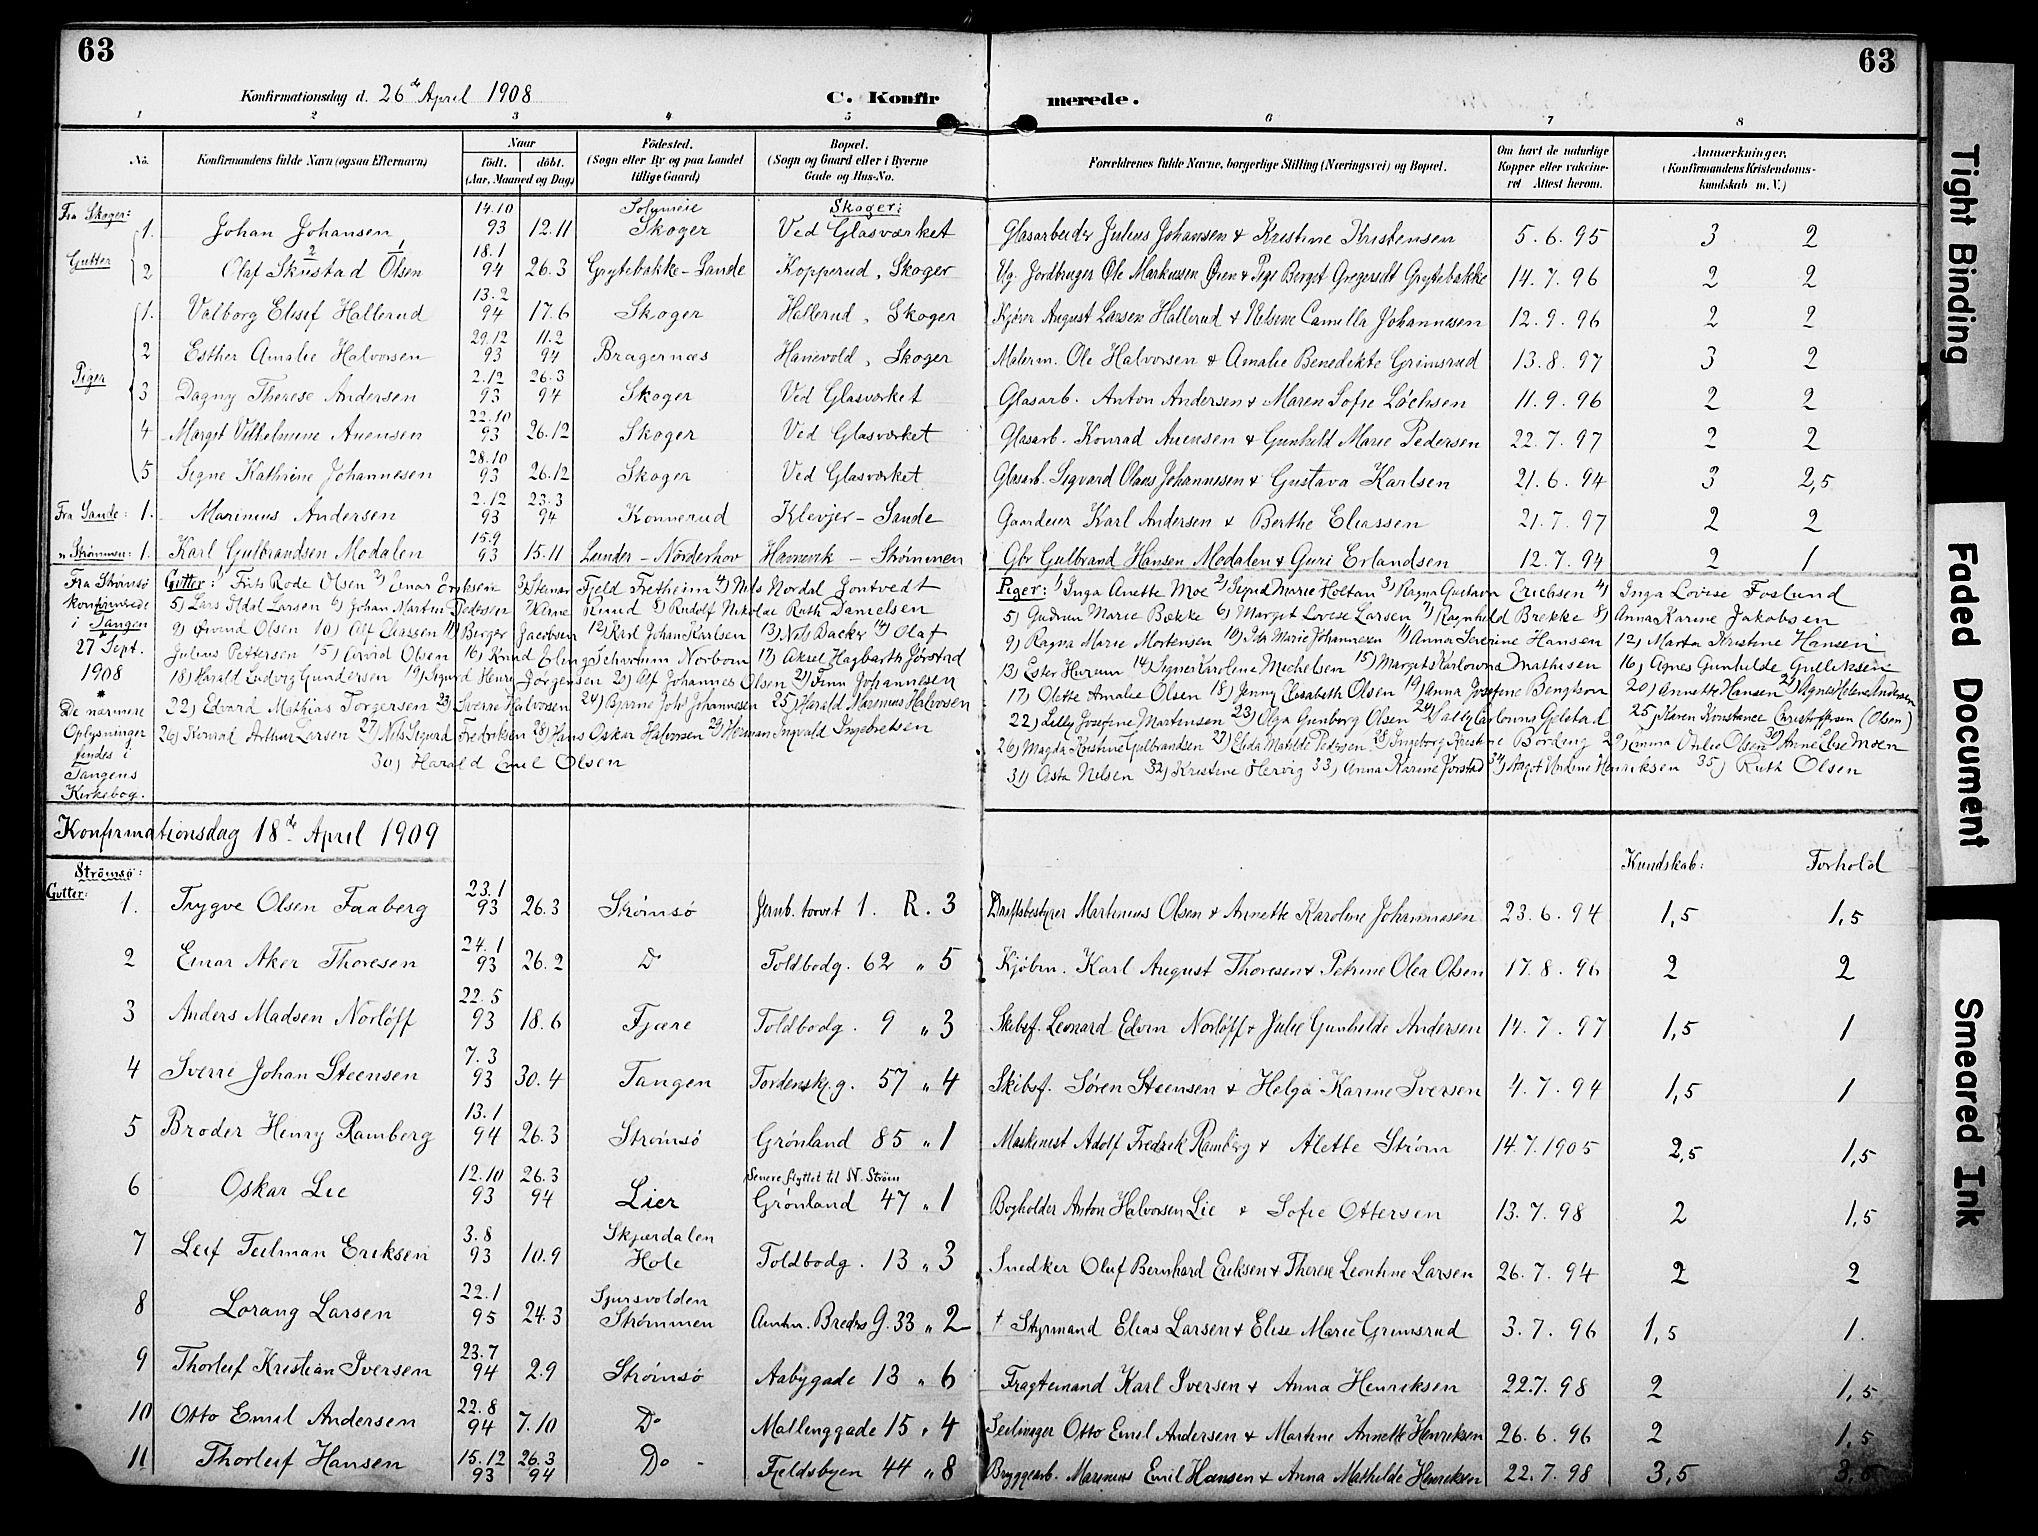 63
63
Konfirmationsdag d. 26de April 1908
C. Konfirmerede.
1 2 3 4 5 6 7 8
No. Konfirmandens fulde Navn (ogsaa Efternavn) Naar født. døbt. (Aar, Maaned og Dag) Fødested. (Sogn eller By og paa Landet tillige Gaard) Bopæl. (Sogn og Gaard eller i Byerne Gade og Hus-No. Forældrenes fulde Navne, borgerlige Stilling (Næringsvei) og Bopæl. Om havt de naturlige Kopper eller vakcineret Attest herom. Anmærkninger. (Konfirmandens Kristendomskundskab m. V.)
Fra Skoger: Skoger:
Gutter 1. Johan Johansen 14.10 93 12.11 Solymeie Skoger Ved Glasværket Glasarbeider Julius Johansen & Kristine Kristensen 5.6.95 3 2
2 Olaf Skustad Olsen 18.1 94 26.3 Grytebakke - Sande Kopperud, Skoger Ug. Jordbruger Ole Markussen Øren & Pige Berget Gregersdt Grytebakke 14.7.96 2 2
Piger 1. Valborg Elisif Hallerud 13.2 94 17.6 Skoger Hallerud, Skoger Kjører August Larsen Hallerud & Nelsine Camilla Johannesen 12.9.96 2 2
2 Esther Amalie Halvorsen 29.12 93 11.2 94 Bragernæs Hanevold, Skoger Malerm. Ole Halvorsen & Amalie Benedikte Grimsrud 13.8.97 3 2
3 Dagny Therese Andersen 2.12 93 26.3 94 Skoger Ved Glasværket Glasarb. Anton Andersen & Maren Sofie Løchsen 11.9.96 2 2
4 Margit Vilhelmine Auensen 22.10 93 26.12 Skoger Ved Glasværket Glasarb. Konrad Auensen & Gunhild Marie Pedersen 22.7.97 2 2
5 Signe Kathrine Johannesen 28.10 93 26.12 Skoger Ved Glasværket Glasarb. Sigvard Olaus Johannesen & Gustava Karlsen 21.6.94 3 2,5
Fra Sande: 1. Marinius Andersen 2.12 93 23.3 94 Konnerud Klevjer - Sande Gaardeier Karl Andersen & Berthe Eliassen 21.7.97 2 2
" Strømmen: 1. Karl Gulbrandsen Modalen 15.9 93 15.11 Lunder - Norderhov Hannevik - Strømmen Gbr Gulbrand Hansen Modalen & Guri Erlandsen 12.7.94 2 1
Fra Strømsø konfirmerede i Tangen 27 Sept. 1908
De nærmere Oplysninger findes i Tangens Kirkebog.
Gutter: 1) Frits Rode Olsen 2) Einar Eriksen 3) Steinar Fjeld Fretheim 4) Nils Nordal Jontvedt
5) Lars Fidel Larsen 6) Johan Martin Pedersen 7) Arne Ruud 8) Rudolf Nikolai Ruth Danielsen
9) Øivind Olsen 10) Alf Eliassen 11) Birger Jacobsen 12) Karl Johan Karlsen 13) Nils Backer 14) Olaf
Julius Pettersen 15) Arvid Olsen 16) Knud Erling Norbom 17) Aksel Hagbarth Jørstad
18) Harald Ludvig Gundersen 19) Sigurd Henry Jørgensen 20) Alf Johannes Olsen 21) Finn Johannesen
22) Edvard Mathias Torgersen 23) Sverre Halvorsen 24) Bjarne Johs Johannesen 25) Harald Marinius Halvorsen
26) Konrad Arthur Larsen 27) Nils Sigurd Fredriksen 28) Hans Oskar Halvorsen 29) Herman Ingvald Ingebretsen
30) Harald Emil Olsen
Piger: 1) Inga Anette Moe 2) Sigrid Marie Holtan 3) Ragna Gustava Erichsen 4) Inga Lovise Foslund
5) Gudrun Marie Bække 6) Margit Lovise Larsen 7) Ragnhild Brekke 8) Anna Karine Jakobsen
9) Ragna Marie Mortensen 10) Ida Marie Johannesen 11) Anna Severine Hansen 12) Marta Kristine Hansen
13) Ester Hurum 14) Signe Karoline Michelsen 15) Margit Karlowna Mathisen 16) Agnes Gunhilde Gulliksen
17) Olette Amalie Olsen 18) Jenny Elisabeth Olsen 19) Anna Josefine Bengtson 20) Annette Hansen 21) Agnes Helene Andersen
22) Lilly Josefine Martensen 23) Olga Gunborg Olsen 24) Vally Carlowna Gulstad 25) Karen Konstance Christoffersen (Olsen)
26) Magda Kristine Gulbrandsen 27) Elida Matilde Pedersen 28) Ingeborg Kristine Bording 29) Emma Otilie Olsen 30) Anne Elise Moen
31) Asta Nilsen 32) Kristine Hervig 33) Anna Karine Jørstad 34) Aagot Undine Henriksen 35) Ruth Olsen
Konfirmationsdag 18de April 1909
Strømsø: Kundskab: Forhold
Gutter:
1. Trygve Olsen Faaberg 23.1 93 26.3 Strømsø Jernb. torvet 1. R. 3 Driftsbestyrer Martinius Olsen & Annette Karoline Johannesen 23.6.94 1,5 1,5
2 Einar Aker Thoresen 24.1 93 26.2 Do Toldbodg. 62 " 5 Kjøbm. Karl August Thoresen & Petrine Olea Olsen 17.8.96 2 2
3 Anders Madsen Norløff 22.5 93 18.6 Fjære Toldbodg. 9 " 3 Skibsf. Leonard Edvin Norløff & Julie Gunhilde Andersen 14.7.97 1,5 1
4 Sverre Johan Steensen 7.3 93 30.4 Tangen Tordenskj.g. 57 " 4 Skibsf. Søren Steensen & Helga Karine Iversen 4.7.94 1,5 1
5 Broder Henry Ramberg 13.1 94 26.3 Strømsø Grønland 85 " 1 Maskinist Adolf Fredrik Ramberg & Alette Strøm 14.7.1905 2,5 1,5
6 Oskar Lie 12.10 93 26.3 94 Lier Senere flyttet til N. Strøm Grønland 47 " 1 Bogholder Anton Halvorsen Lie & Sofie Ottersen 13.7.98 2 1,5
7 Leif Teilman Eriksen 3.8 93 10.9 Skjærdalen Hole Toldbodg. 13 " 3 Snedker Oluf Bernhard Eriksen & Therese Leontine Larsen 26.7.94 2 2
8 Lorang Larsen 22.1 95 24.3 Sjursvolden Strømmen Amtm. Bredes G. 33 " 2 † Styrmand Elias Larsen & Elise Marie Grimsrud 3.7.96 1,5 1.
9 Thorleif Kristian Iversen 23.7 94 2.9 Strømsø Aabygade 13 " 6 Fragtemand Karl Iversen & Anna Henriksen 22.7.98 2 1,5
10 Otto Emil Andersen 22.8 94 7.10 Do Mallinggade 15 " 4 Otto Emil Andersen & Martine Annette Henriksen 26.6.96 2 1,5
11 Thorleif Hansen 15.12 93 26.3 94 Do - Fjeldsbyen 44 " 8 Bryggearb. Marinius Emil Hansen & Anna Mathilde Henriksen 22.7.98 3,5 3,5
Tight Binding
Faded Document
Smeared Ink